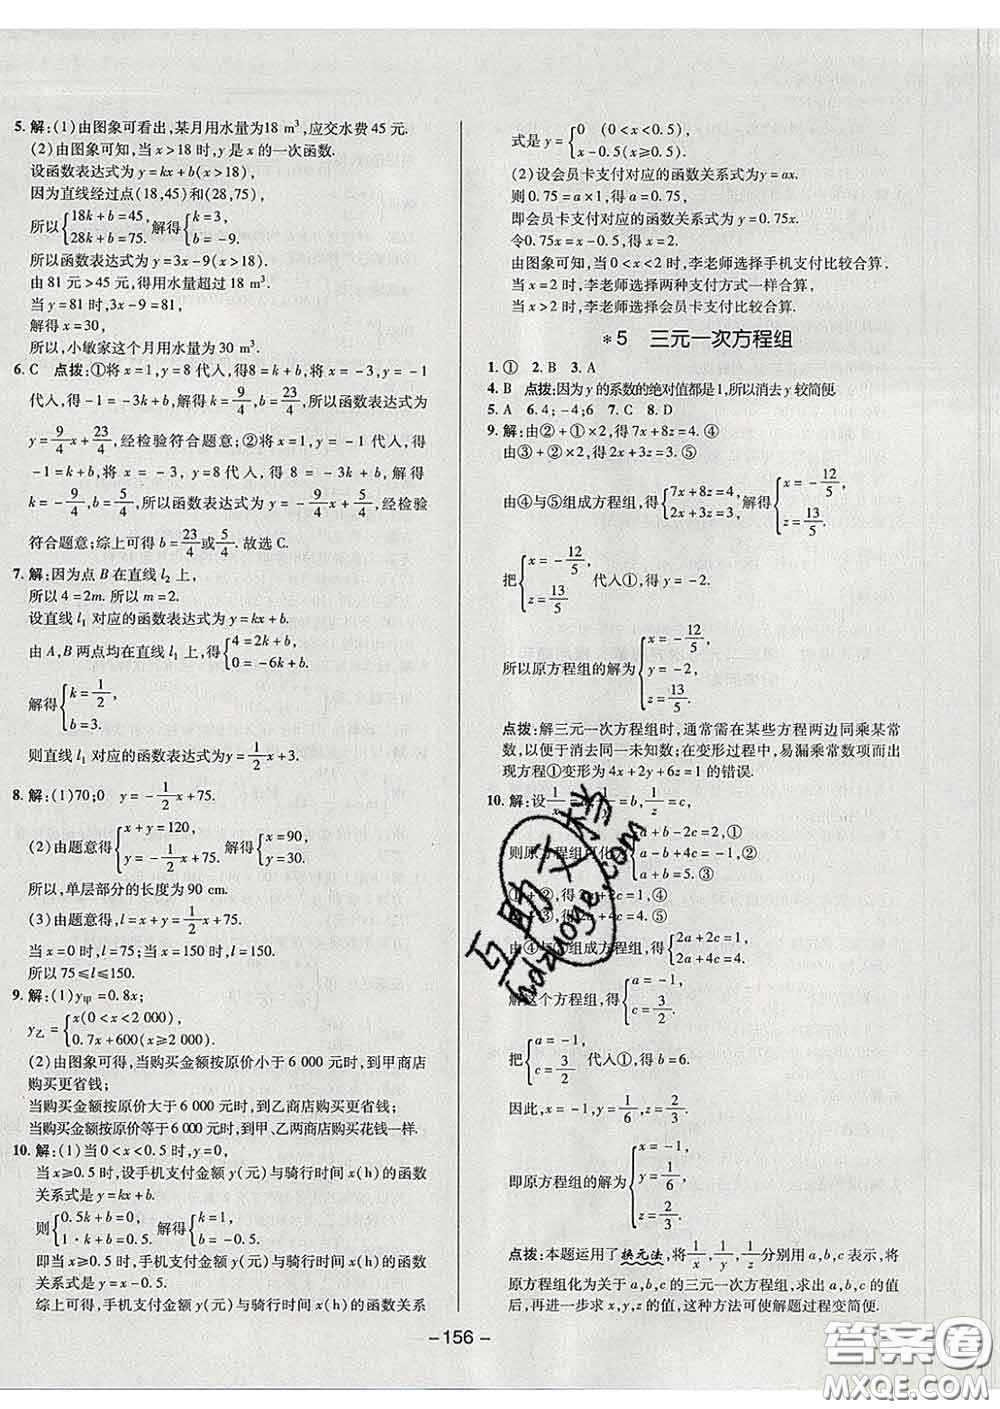 5. 解:(1)由图象可看出,某月用水量为18 m³,应交水费45元.
(2)由图象可知,当x>18时,y是x的一次函数.
设函数表达式为y=kx+b(x>18),
因为直线经过点(18,45)和(28,75),
所以{18k+b=45, 28k+b=75. 解得{k=3, b=-9.
所以函数表达式为y=3x-9(x>18).
由81元>45元,得用水量超过18 m³.
当y=81时,3x-9=81,
解得x=30,
所以,小敏家这个月用水量为30 m³.
6. C 点拨:①将x=1,y=8代入,得8=k+b,将x=-3,y=-1
代入,得-1=-3k+b,解得k=9/4,b=23/4,所以函数表达式为
y=9/4x+23/4,经检验符合题意;②将x=1,y=-1代入,得
-1=k+b,将x=-3,y=8代入,得8=-3k+b,解得
k=-9/4,b=5/4,所以函数表达式为y=-9/4x+5/4,经检验
符合题意;综上可得b=23/4或5/4.故选C.
7. 解:因为点B在直线l₂上,
所以4=2m.所以m=2.
设直线l₁对应的函数表达式为y=kx+b.
由A,B两点均在直线l₁上,得{4=2k+b, 0=-6k+b.
解得{k=1/2, b=3.
则直线l₁对应的函数表达式为y=1/2x+3.
8. 解:(1)70;0 y=-1/2x+75.
(2)由题意得{x+y=120, y=-1/2x+75. 解得{x=90, y=30.
所以,单层部分的长度为90 cm.
(3)由题意得,l=x+y=1/2x+75.
当x=0时,l=75;当x=150时,l=150.
所以75≤l≤150.
9. 解:(1)y甲=0.8x;
y乙={x(0<x<2 000), 0.7x+600(x≥2 000).
(2)由图象可得,当购买金额按原价小于6 000元时,到甲商店
购买更省钱;
当购买金额按原价大于6 000元时,到乙商店购买更省钱;
当购买金额按原价等于6 000元时,到甲、乙两商店购买花钱一样.
10. 解:(1)当0<x<0.5时,y=0,
当x≥0.5时,设手机支付金额y(元)与骑行时间x(h)的函数
关系式是y=kx+b.
则{0.5k+b=0, 1·k+b=0.5. 解得{k=1, b=-0.5.
即当x≥0.5时,手机支付金额y(元)与骑行时间x(h)的函数
关系式是y=x-0.5.
综上可得,手机支付金额y(元)与骑行时间x(h)的函数关系
式是y={0 (0<x<0.5), x-0.5(x≥0.5).
(2)设会员卡支付对应的函数关系式为y=ax.
则0.75=a×1,得a=0.75,
即会员卡支付对应的函数关系式为y=0.75x.
令0.75x=x-0.5,得x=2.
由图象可知,当0<x<2时,李老师选择手机支付比较合算.
当x=2时,李老师选择两种支付方式一样合算.
当x>2时,李老师选择会员卡支付比较合算.
*5 三元一次方程组
1. ① 2. B 3. A
4. B 点拨:因为y的系数的绝对值都是1,所以消去y较简便.
5. A 6. 4;-4;6 7. C 8. D
9. 解:由②+①×2,得7x+8z=4.④
由③+②×2,得2x+3z=3.⑤
由④与⑤组成方程组,得{7x+8z=4, 2x+3z=3. 解得{x=-12/5, z=13/5.
把{x=-12/5, z=13/5 代入①,得y=-2.
所以原方程组的解为{x=-12/5, y=-2, z=13/5.
点拨:解三元一次方程组时,通常需在某些方程两边同乘某常
数,以便于消去同一未知数;在变形过程中,易漏乘常数项而出
现方程①变形为4x+2y+6z=1的错误.
10. 解:设1/x=a,1/y=b,1/z=c,
则原方程组可化为{a+b-2c=2,① a-b+4c=-1,② a+b=5.③
①+②,得2a+2c=1.④
②+③,得2a+4c=4.⑤
由④与⑤组成方程组,得{2a+2c=1, 2a+4c=4.
解这个方程组,得{a=-1, c=3/2.
把{a=-1, c=3/2 代入①,得b=6.
因此,x=-1,y=1/6,z=2/3.
即原方程组的解为{x=-1, y=1/6, z=2/3.
点拨:本题运用了换元法,将1/x,1/y,1/z分别用a,b,c表示,将
原方程组化为关于a,b,c的三元一次方程组,求出a,b,c的值
后,再进一步求x,y,z的值,这种方法可使解题过程变简便.
-156-
互助文档
hdzuoye.com
答案圈
MXQE.COM